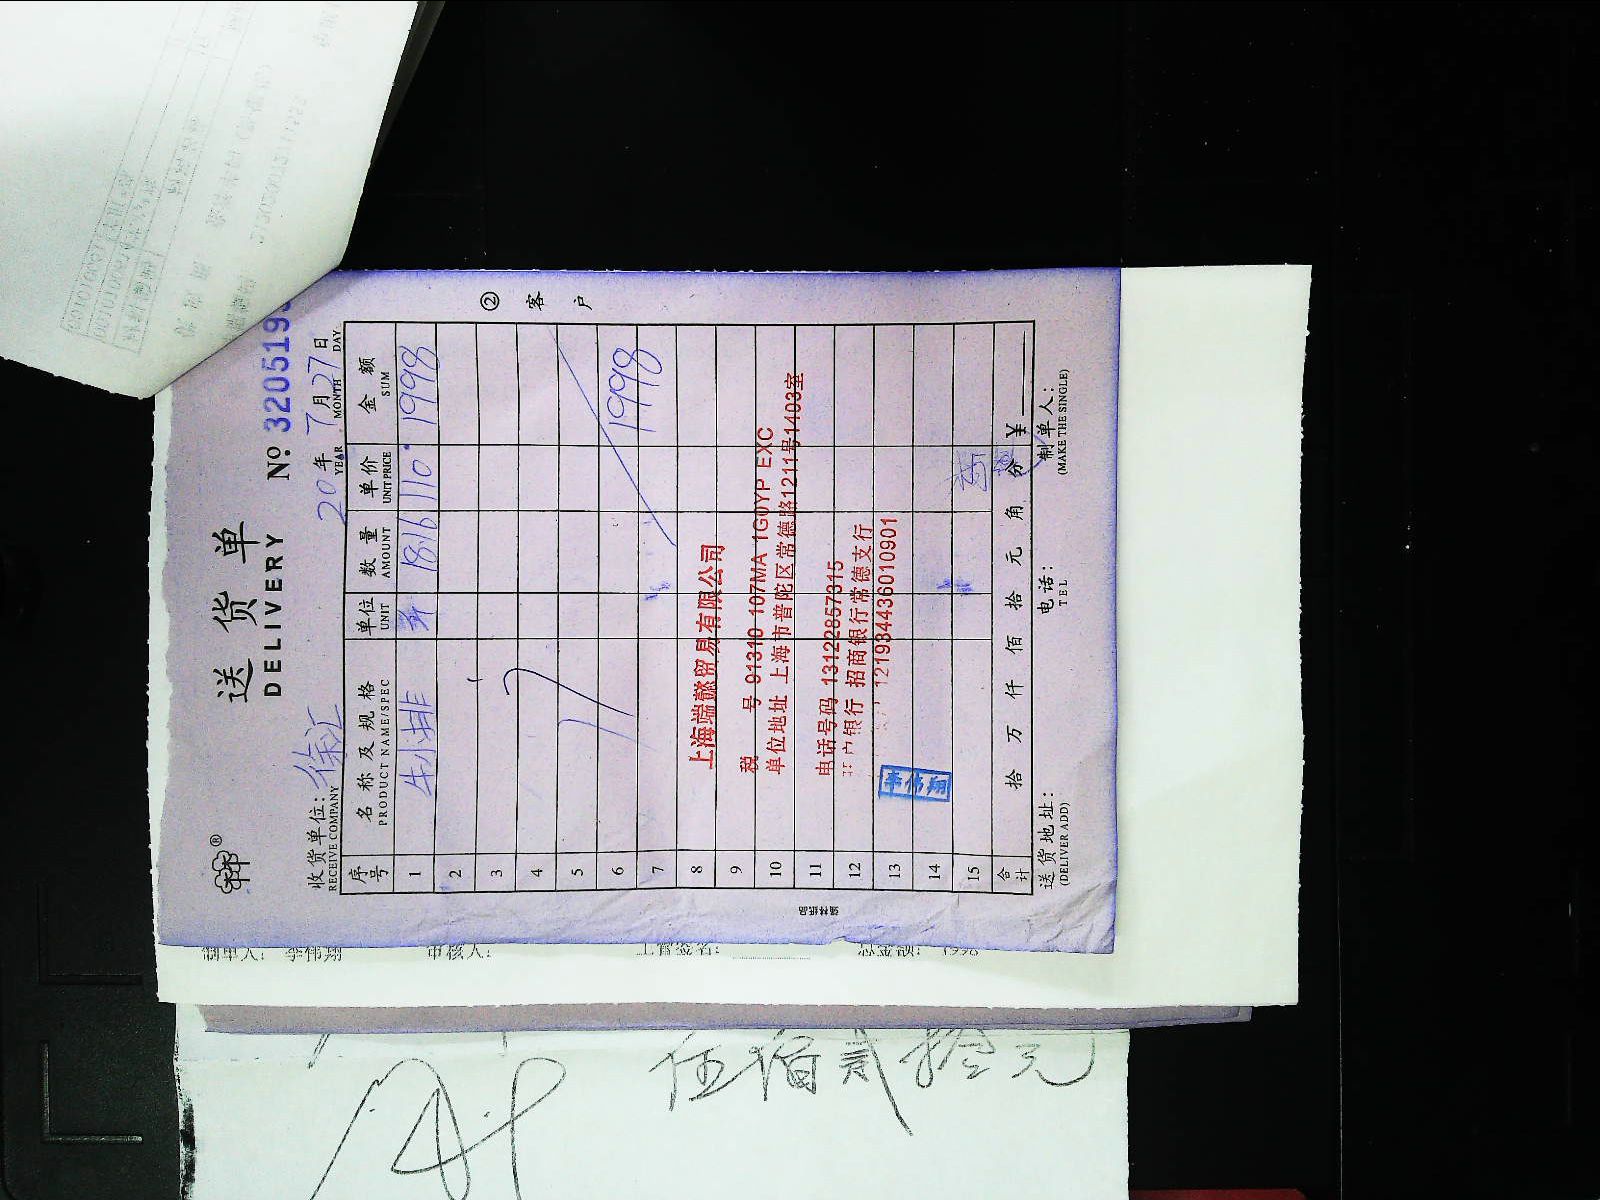 送货单
DELIVERY
№ 3205193
收货单位：徐汇
RECEIVE COMPANY
20 年 7 月 27 日
YEAR MONTH DAY
序号 名称及规格 单位 数量 单价 金额
PRODUCT NAME/SPEC UNIT AMOUNT UNIT PRICE SUM
1 牛小排 18.16 110 1998
2
3
4
5
6 1998
7
8
9
10
11
12
13
14
15
② 客户
上海端懿贸易有限公司
税 号 91310 107MA 1G0YP EXC
单位地址 上海市普陀区常德路1211号1403室
电话号码 13122857315
户银行 招商银行常德支行
121934436010901
李伟翔
合计 拾 万 仟 佰 拾 元 角 分 ¥
送货地址： 电话： 制单人：
(DELIVER ADD) TEL (MAKE THE SINGLE)
制单人： 李伟翔 审核人： 主管签名： 总金额： 1998
伍佰贰拾元